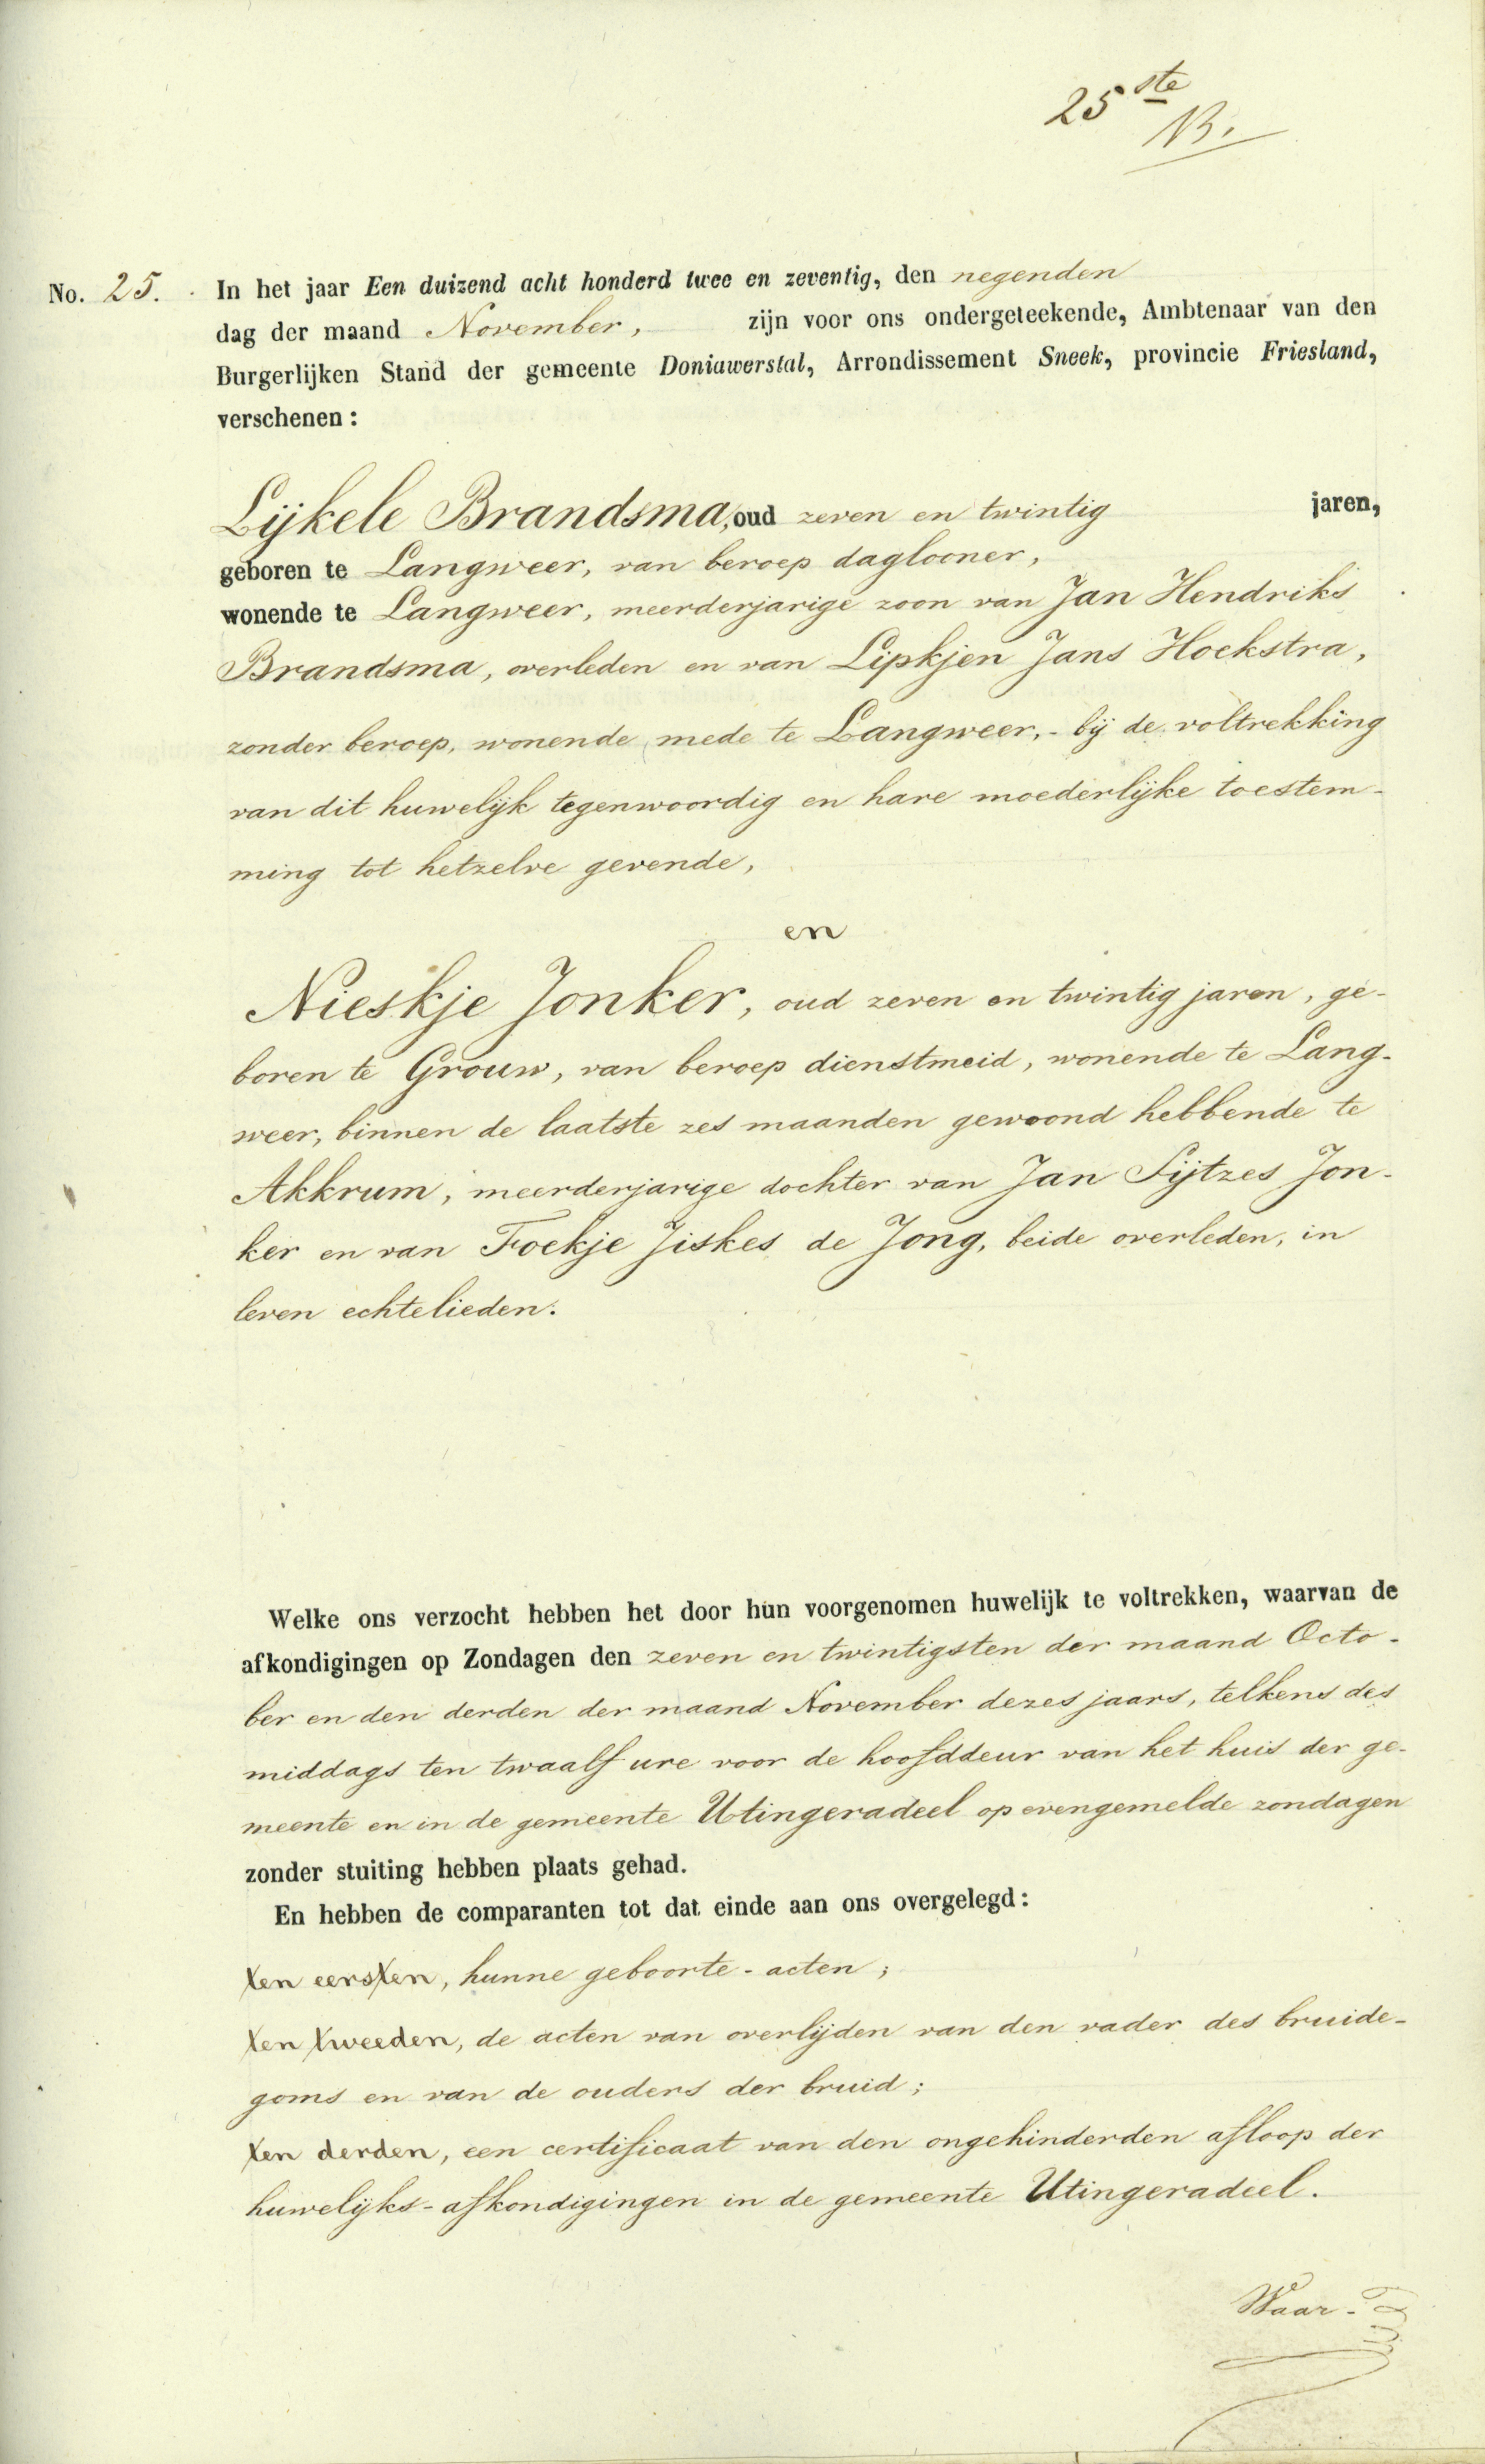 25ste
B.
No. 25. In het jaar Een duizend acht honderd twee en zeventig, den negenden
dag der maand November, zijn voor ons ondergeteekende, Ambtenaar van den
Burgerlijken Stand der gemeente Doniawerstal, Arrondissement Sneek, provincie Friesland,
verschenen:
Lijkele Brandsma, oud zeven en twintig jaren,
geboren te Langweer, van beroep daglooner,
wonende te Langweer, meerderjarige zoon van Jan Hendriks
Brandsma, overleden en van Lipkjen Jans Hoekstra,
zonder beroep, wonende mede te Langweer,- bij de voltrekking
van dit huwelijk tegenwoordig en hare moederlijke toestem-
ming tot hetzelve gevende,
en
Nieskje Jonker, oud zeven en twintig jaren, ge-
boren te Grouw, van beroep dienstmeid, wonende te Lang-
weer, binnen de laatste zes maanden gewoond hebbende te
Akkrum, meerderjarige dochter van Jan Sijtzes Jon-
ker en van Foekje Jiskes de Jong, beide overleden, in
leven echtelieden.
Welke ons verzocht hebben het door hun voorgenomen huwelijk te voltrekken, waarvan de
afkondigingen op Zondagen den zeven en twintigsten der maand Octo-
ber en den derden der maand November dezes jaars, telkens des
middags ten twaalf ure voor de hoofddeur van het huis der ge-
meente en in de gemeente Utingeradeel op evengemelde zondagen
zonder stuiting hebben plaats gehad.
En hebben de comparanten tot dat einde aan ons overgelegd:
ten eersten, hunne geboorte-acten;
ten tweeden, de acten van overlijden van den vader des bruide-
goms en van de ouders der bruid;
ten derden, een certificaat van den ongehinderden afloop der
huwelijks-afkondigingen in de gemeente Utingeradeel.
Waar-